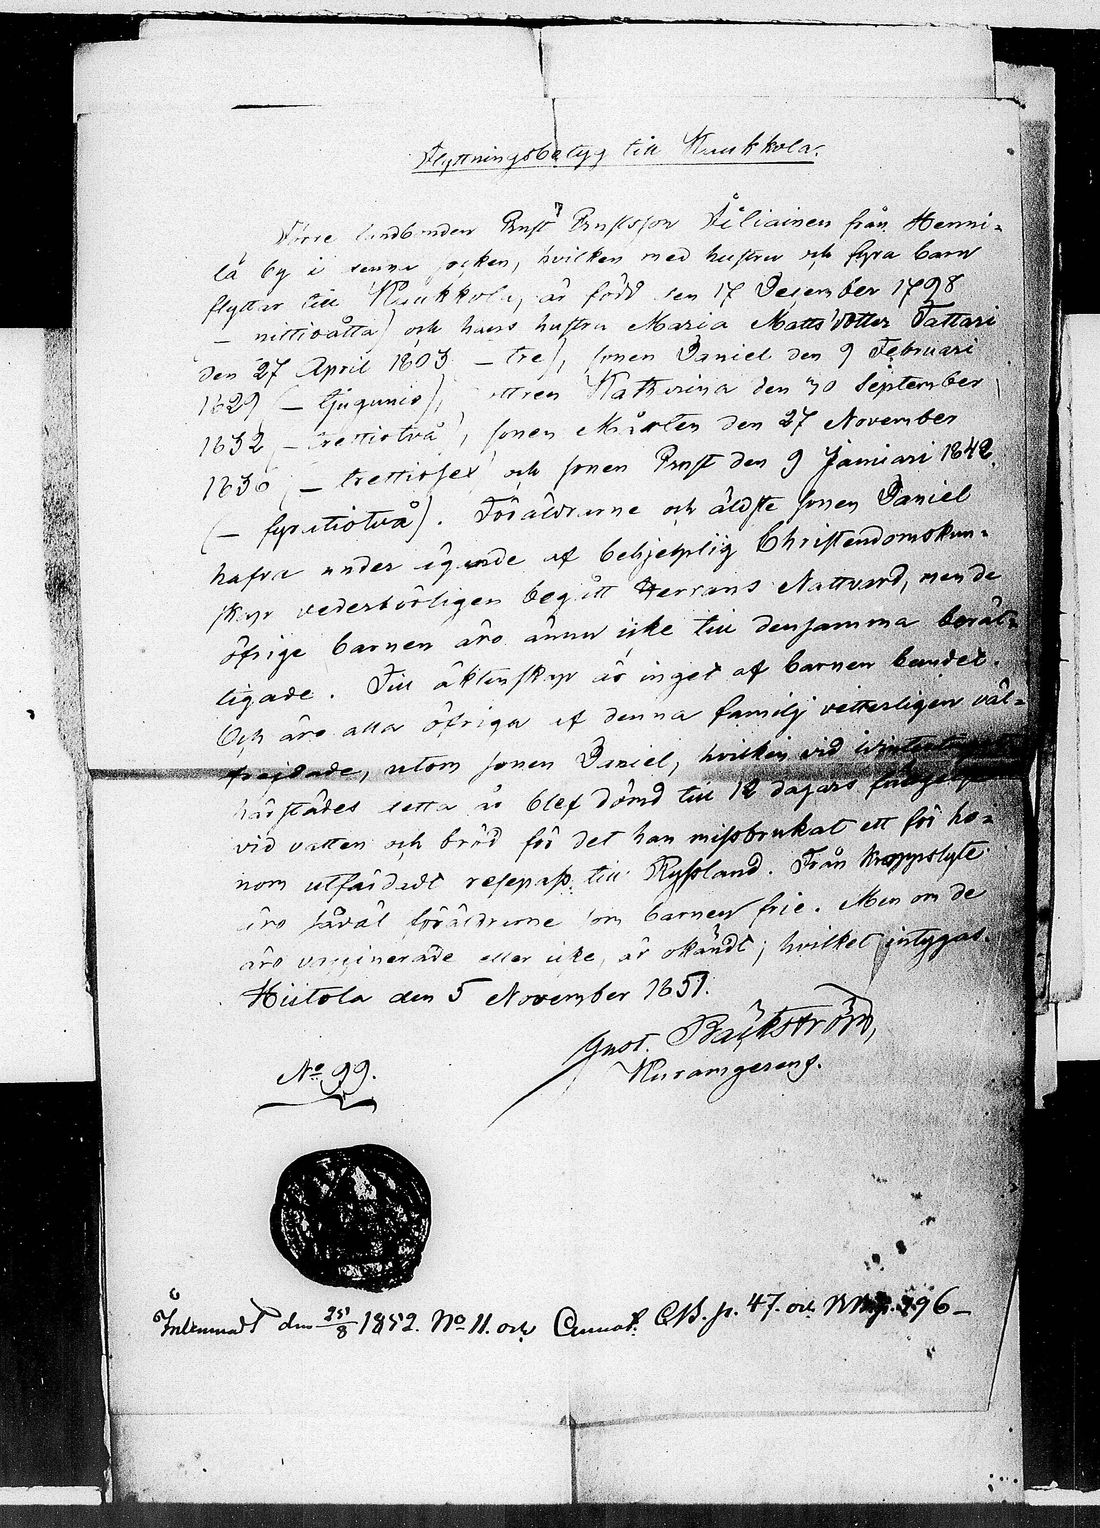 Flyttningsbetyg till Kuukkola.
Förre landbonden Ernst Ernstsson Siliainen från Henni-
lä by i denna socken, hvilken med hustru och fyra barn
flyttar till Kuukkola, är född den 17 December 1798
– nittioåtta) och hans hustru Maria Matts dotter Tattari
den 27 April 1803 – tre), sonen Daniel den 9 Februari
1829 (– tjugunio), Katharina den 30 September
1832 – trettiotvå), sonen Mårten den 27 November
1836 – trettiosex och sonen Ernst den 9 Januari 1842.
(– fyratiotvå). Föräldrarne och äldste sonen Daniel
hafva under egande af behjelplig Christendomskun-
skap vederbörligen begått Herrans Nattvard, men de
öfrige barnen äro ännu icke till densamma berät-
tigade. Till äktenskap är inget af barnen bundet.
Och äro alla öfriga af denna familj vetterligen väl-
frejdade, utom sonen Daniel, hvilken vid
härstädes detta år blef dömd till 12 dagars fängelse
vid vatten och bröd för det han missbrukat ett för ho-
nom utfärdadt resepass till Ryssland. Från kroppslyte
äro såväl föräldrarne som barnen frie. Men om de
äro vaccinerade eller icke, är okändt; hvilket intygas.
Hiitola den 5 November 1851.
Gust. Bäckström,
No 99.
Inlemnadt den 25/8 1852. No 11. och Annot. CB. p. 47. och p. 296 –